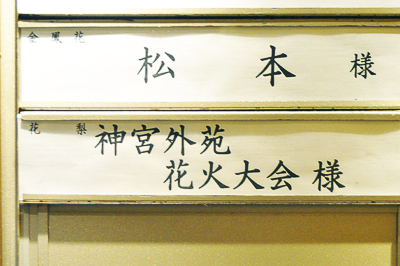 金鳳花
松本様
花梨
神宮外苑
花火大会様